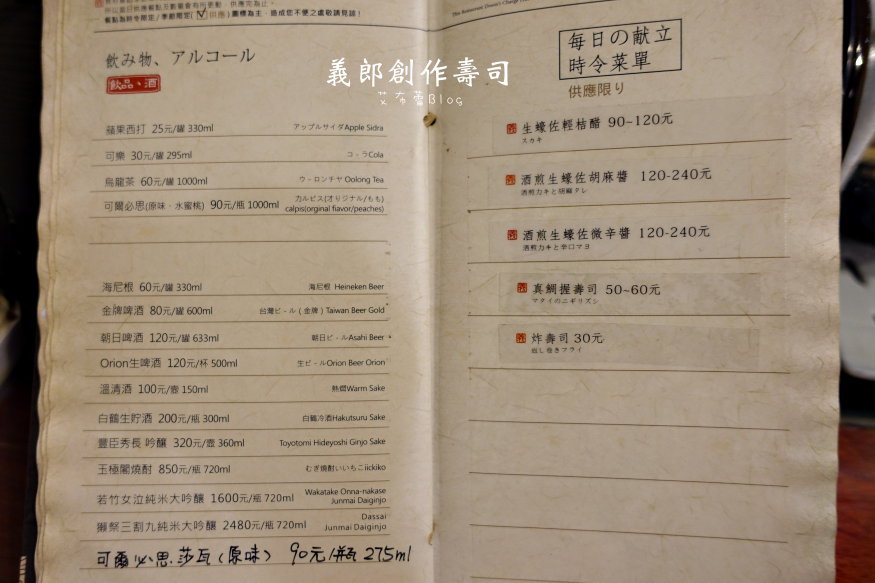 餐點為時令限定/季節限定(✓供應)圖標為主,造成您不便之處敬請見諒!
飲み物、アルコール
飲品、酒
蘋果西打 25元/罐 330ml アップルサイダApple Sidra
可樂 30元/罐 295ml コーラCola
烏龍茶 60元/罐 1000ml ウーロンチヤ Oolong Tea
可爾必思(原味、水蜜桃) 90元/瓶 1000ml カルピス(オリジナル/もも)
calpis(orginal fiavor/peaches)
海尼根 60元/罐 330ml 海尼根 Heineken Beer
金牌啤酒 80元/罐 600ml 台灣ビール(金牌)Taiwan Beer Gold
朝日啤酒 120元/罐 633ml 朝日ビールAsahi Beer
Orion生啤酒 120元/杯 500ml 生ビールOrion Beer Orion
溫清酒 100元/壺 150ml 熱燗Warm Sake
白鶴生貯酒 200元/瓶 300ml 白鶴冷酒Hakutsuru Sake
豐臣秀長 吟釀 320元/壺 360ml Toyotomi Hideyoshi Ginjo Sake
玉極閣燒酎 850元/瓶 720ml むぎ焼酎いいちこiickiko
若竹女泣純米大吟釀 1600元/瓶 720ml Wakatake Onna-nakase
Junmai Daiginjo
獺祭三割九純米大吟釀 2480元/瓶 720ml Dassai
Junmai Daiginjo
可爾必思.莎瓦(原味) 90元/瓶 275ml
義郎創作壽司
艾布蕾Blog
毎日の献立
時令菜單
供應限り
生蠔佐輕桔醋 90~120元
スカキ
酒煎生蠔佐胡麻醬 120-240元
酒煎カキと胡麻タレ
酒煎生蠔佐微辛醬 120-240元
酒煎カキと辛口マヨ
真鯛握壽司 50~60元
マタイのニギリズシ
炸壽司 30元